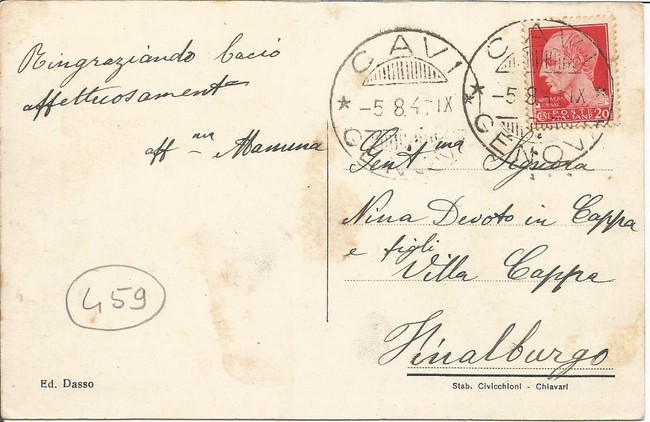 Ringraziando bacio
affettuosament
aff ma Mamma
CAVI
-5.8.4 IX
GENOVA
CAVI
-5.8 IX
GENOVA
POSTE
ITALIANE
CENT 20
Gent ma Signora
Nina Devoto in Cappa
e figli
Villa Cappa
Finalburgo
459
Ed. Dasso
Stab. Civicchioni - Chiavari